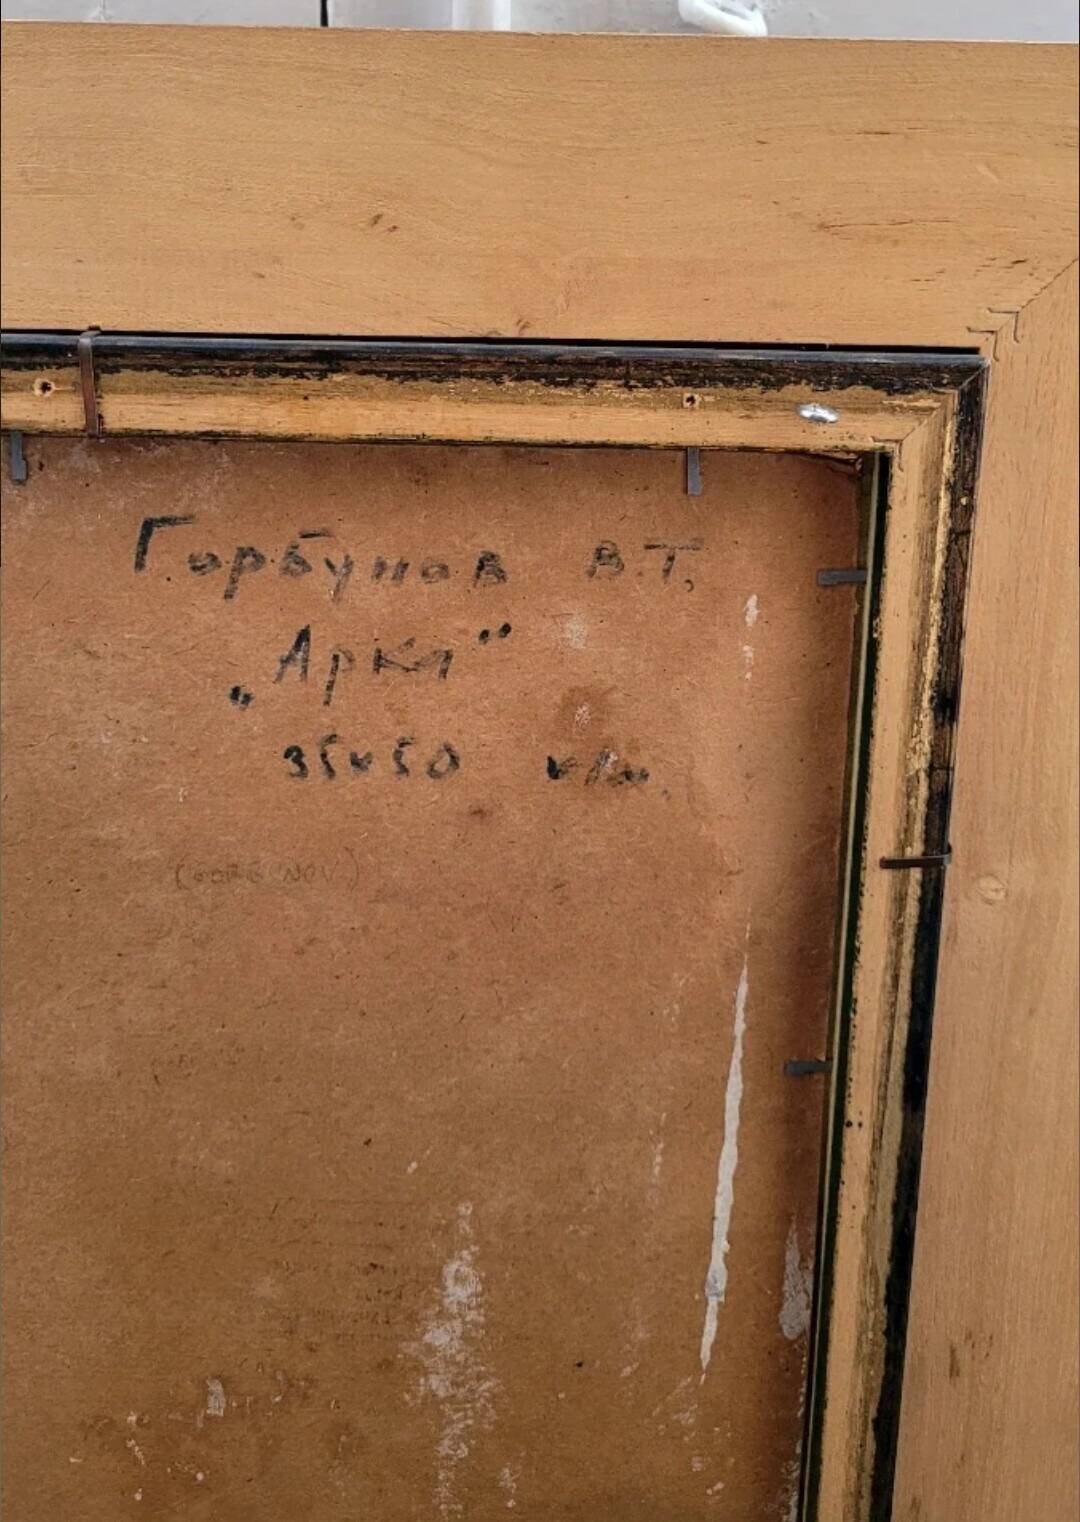 Горбунов В.Т.
„Арка“
35х50 к/м.
(GORBUNOV)